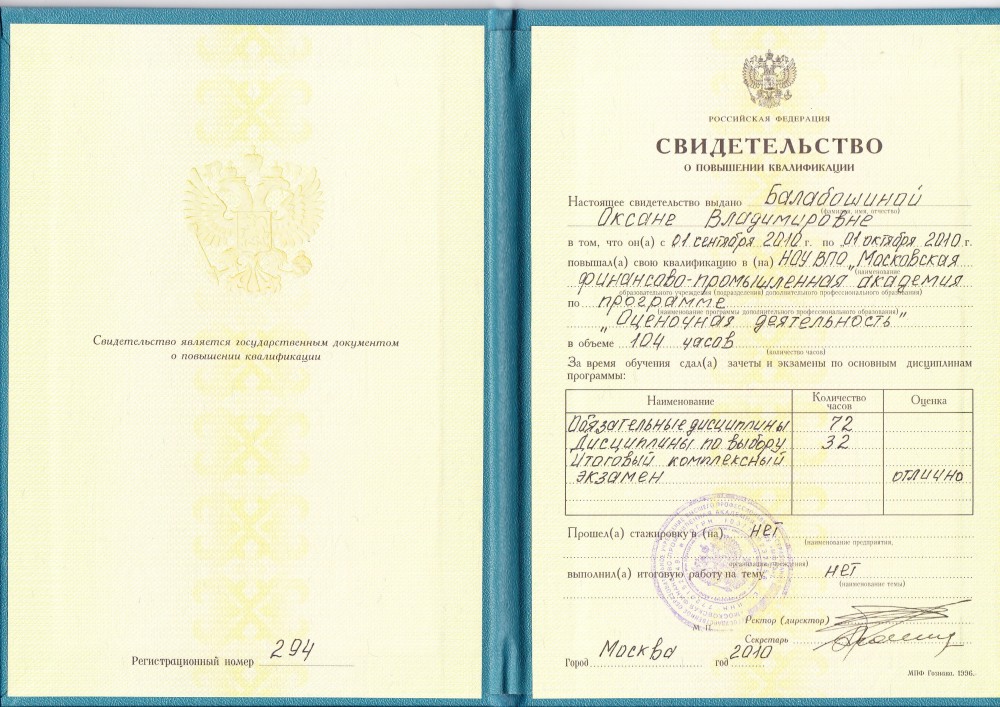 Свидетельство является государственным документом
о повышении квалификации
Регистрационный номер 294
РОССИЙСКАЯ ФЕДЕРАЦИЯ
СВИДЕТЕЛЬСТВО
О ПОВЫШЕНИИ КВАЛИФИКАЦИИ
Настоящее свидетельство выдано Балабошиной
(фамилия, имя, отчество)
Оксане Владимировне
в том, что он(а) с 01 сентября 2010 г. по 01 октября 2010 г.
повышал(а) свою квалификацию в (на) НОУ ВПО „Московская
(наименование
финансово-промышленная академия
образовательного учреждения (подразделения) дополнительного профессионального образования)
по программе
(наименование программы дополнительного профессионального образования)
„Оценочная деятельность"
в объеме 104 часов
(количество часов)
За время обучения сдал(а) зачеты и экзамены по основным дисциплинам
программы:
Наименование Количество часов Оценка
Обязательные дисциплины 72
Дисциплины по выбору 32
Итоговый комплексный
экзамен отлично
Прошел(а) стажировку в (на) нет
(наименование предприятия,
организации, учреждения)
выполнил(а) итоговую работу на тему нет
(наименование темы)
М. П.
Ректор (директор)
Секретарь
Город Москва год 2010
МПФ Гознака. 1996.